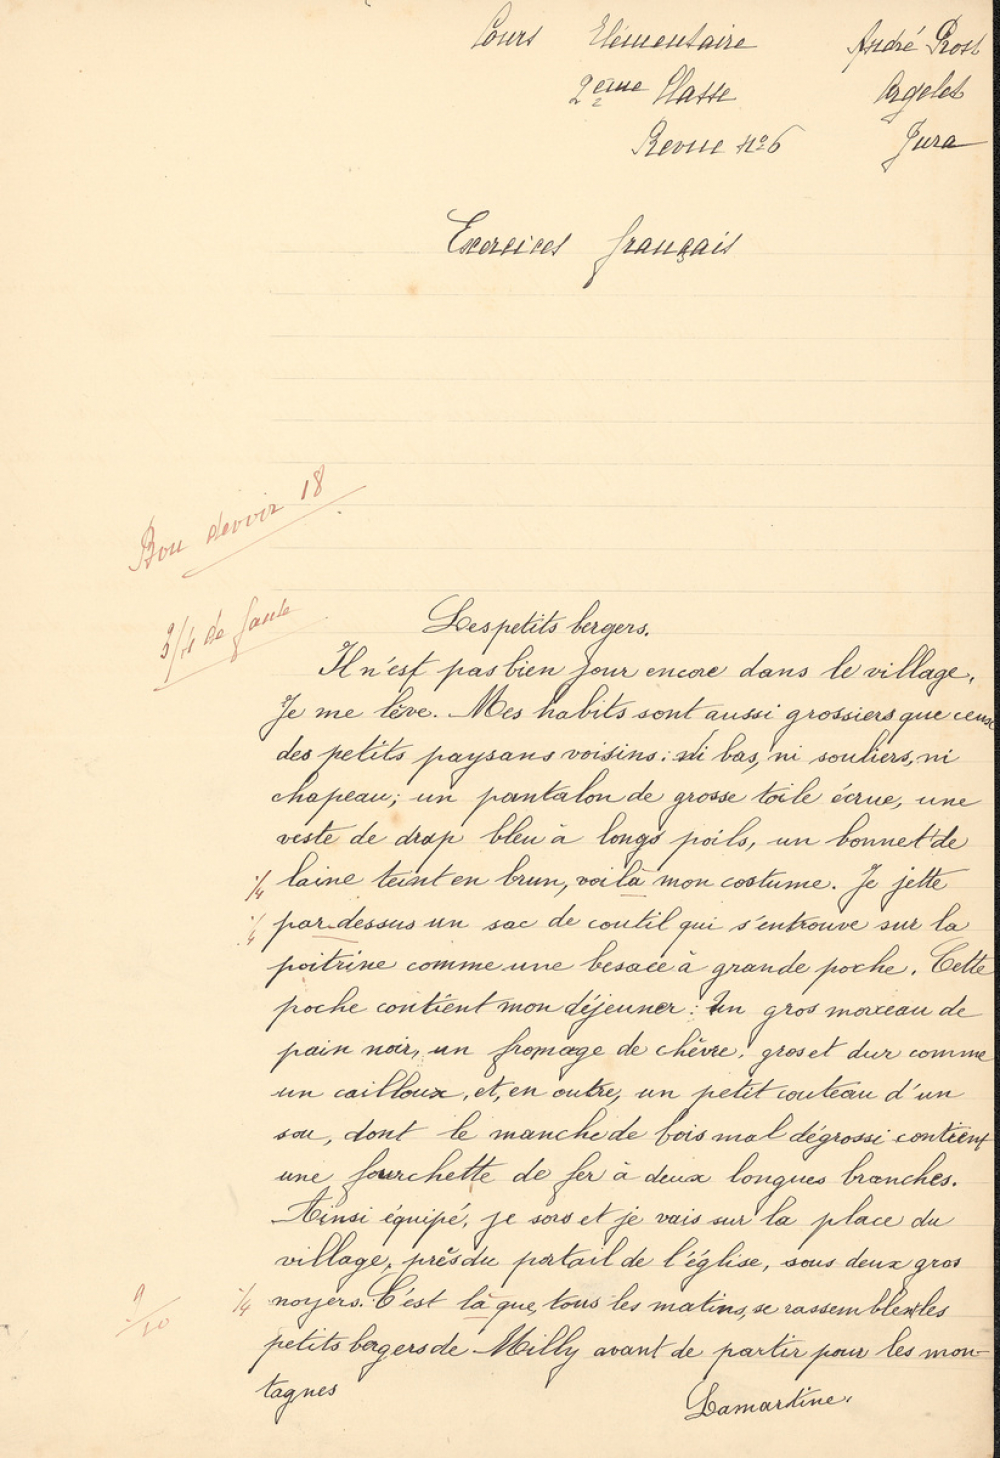 Cours Elémentaire André Prost
2ème Classe Orgelet
Revue nº6 Jura
Exercices français
Bon devoir 18
3/4 de faute
Les petits bergers.
Il n'est pas bien jour encore dans le village.
Je me lève. Mes habits sont aussi grossiers que ceux
des petits paysans voisins: ni bas, ni souliers, ni
chapeau; un pantalon de grosse toile écrue, une
veste de drap bleu à longs poils, un bonnet de
1/4 laine teint en brun, voilà mon costume. Je jette
1/4 par dessus un sac de coutil qui s'entrouve sur la
poitrine comme une besace à grande poche. Cette
poche contient mon déjeuner: Un gros morceau de
pain noir, un fromage de chèvre, gros et dur comme
un cailloux, et, en outre, un petit couteau d'un
sou, dont le manche de bois mal dégrossi contient
une fourchette de fer à deux longues branches.
Ainsi équipé, je sors et je vais sur la place du
village, près du portail de l'église, sous deux gros
1/4 noyers. C'est là que, tous les matins, se rassemblent les
9/10
petits bergers de Milly avant de partir pour les mon-
tagnes
Lamartine.